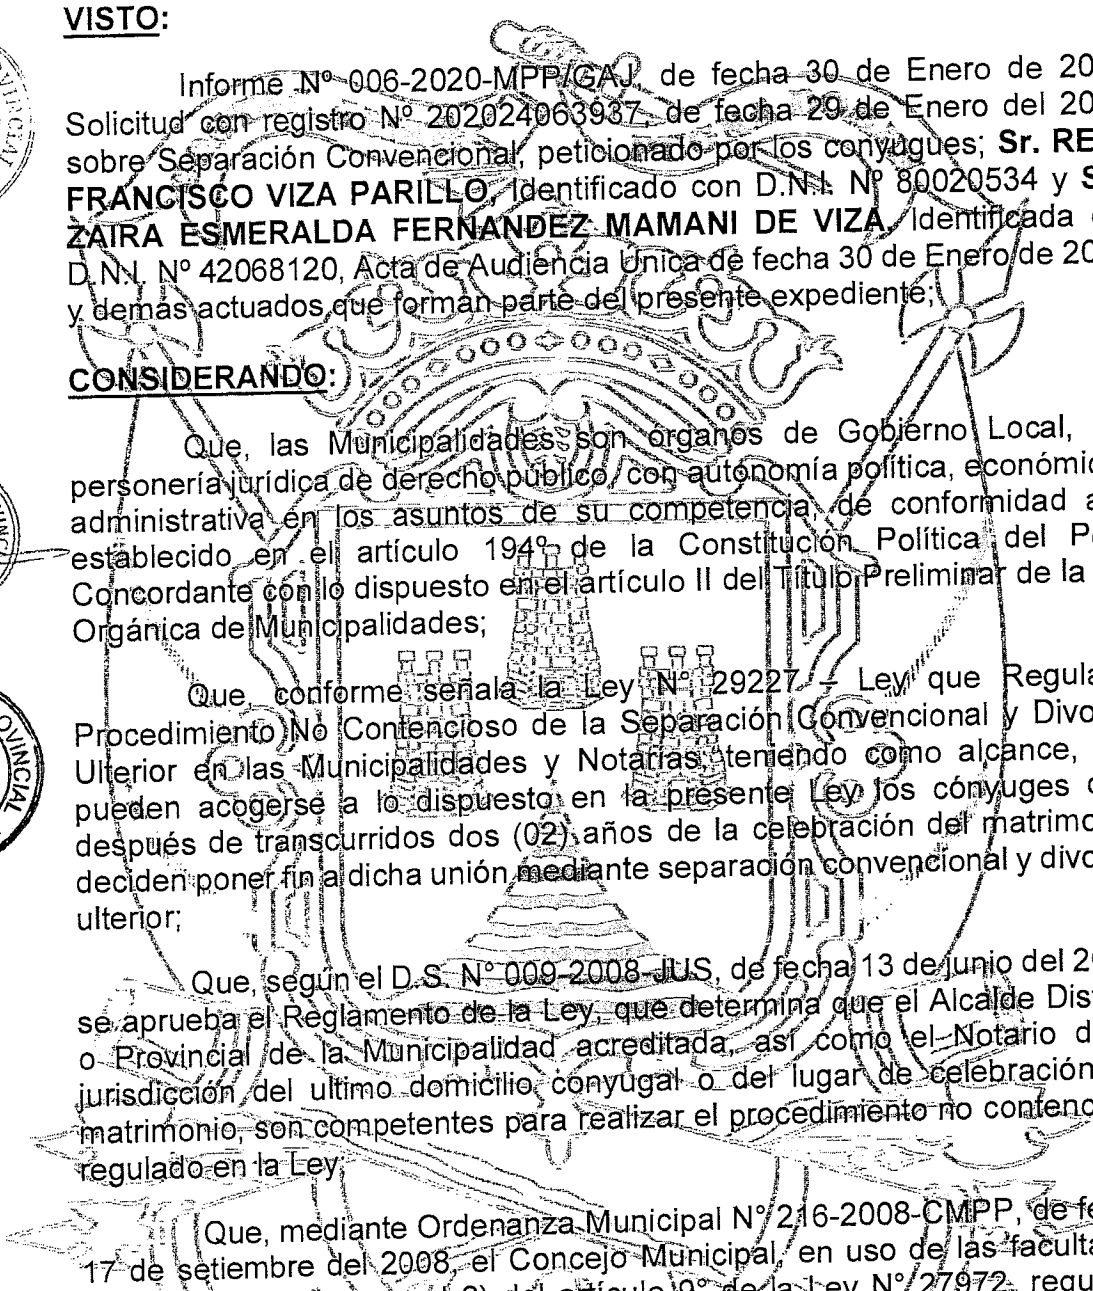 VISTO:
Informe Nº 006-2020-MPP/GAJ, de fecha 30 de Enero de 20
Solicitud con registro Nº 202024063937, de fecha 29 de Enero del 20
sobre Separación Convencional, peticionado por los conyugues; Sr. RE
FRANCISCO VIZA PARILLO, Identificado con D.N.I. Nº 80020534 y S
ZAIRA ESMERALDA FERNANDEZ MAMANI DE VIZA, Identificada
D.N.I. Nº 42068120, Acta de Audiencia Única de fecha 30 de Enero de 20
y demás actuados que forman parte del presente expediente;
CONSIDERANDO:
Que, las Municipalidades son órganos de Gobierno Local,
personería jurídica de derecho público, con autónomía política, económic
administrativa en los asuntos de su competencia, de conformidad a
establecido en el artículo 194º de la Constitución Política del P
Concordante con lo dispuesto en el artículo II del Título Preliminar de la
Orgánica de Municipalidades;
Que, conforme señala la Ley N° 29227 – Ley que Regula
Procedimiento No Contencioso de la Separación Convencional y Divo
Ulterior en las Municipalidades y Notarías, teniendo como alcance,
pueden acogerse a lo dispuesto en la presente Ley los cónyuges
después de transcurridos dos (02) años de la celebración del matrimo
deciden poner fin a dicha unión mediante separación convencional y divo
ulterior;
Que, según el D.S. N° 009-2008-JUS, de fecha 13 de junio del 20
se aprueba el Reglamento de la Ley, que determina que el Alcalde Dis
o Provincial de la Municipalidad acreditada, así como el Notario d
jurisdicción del ultimo domicilio conyugal o del lugar de celebración
matrimonio, son competentes para realizar el procedimiento no contenc
regulado en la Ley;
Que, mediante Ordenanza Municipal N° 216-2008-CMPP, de fe
17 de setiembre del 2008, el Concejo Municipal, en uso de las faculta
del artículo 9° de la Ley N° 27972, regu
OVINCIAL